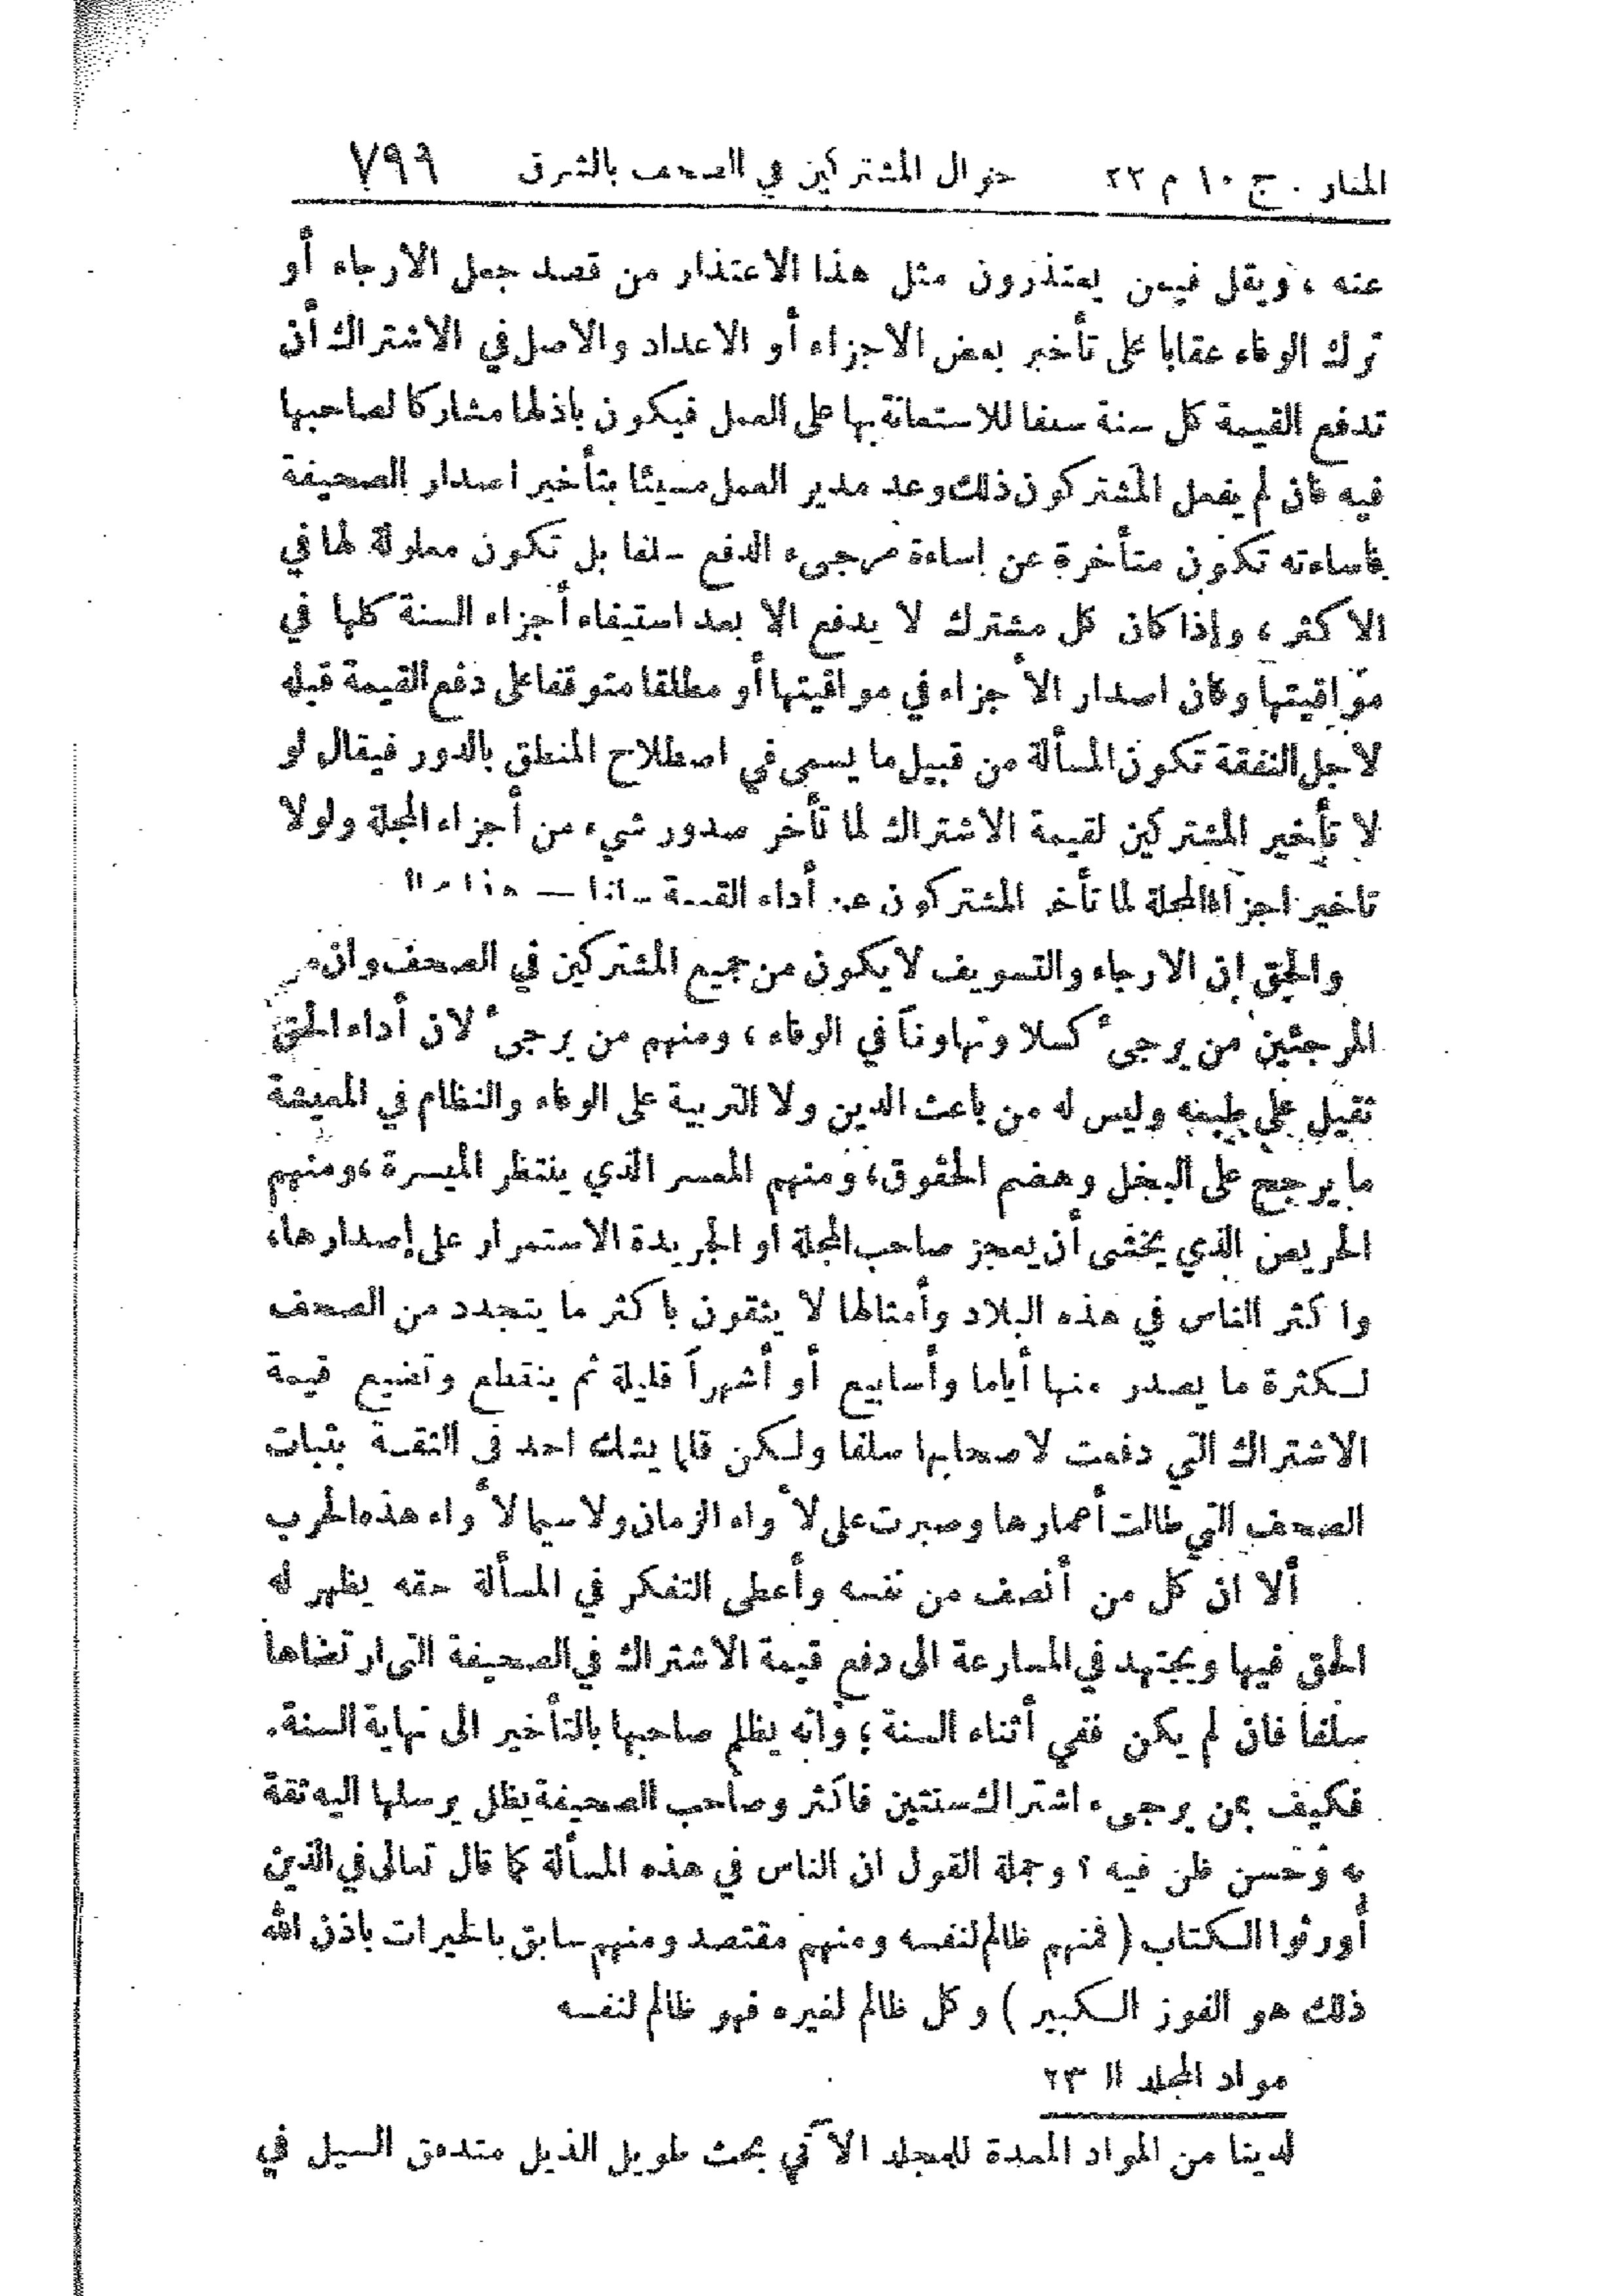 المنار . ج ١٠ م ٢٢ حوال المشتركين في الصحف بالشرق ٧٩٩
عنه ، ويقل فيمن يعتذرون مثل هذا الاعتذار من قصد جعل الارجاء أو
ترك الوفاء عقابا على تأخير بعض الاجزاء أو الاعداد والاصل في الاشتراك أن
تدفع القيمة كل سنة سلفا للاستعانة بها على العمل فيكون باذلها مشاركا لصاحبها
فيه فان لم يفعل المشتركون ذلك وعد مدير العمل مسيئا بتأخير اصدار الصحيفة
فاساءته تكون متأخرة عن إساءة مرجىء الدفع سلفا بل تكون معلولة لها في
الاكثر ، وإذا كان كل مشترك لا يدفع الا بعد استيفاء أجزاء السنة كلها في
مواقيتها وكان اصدار الأجزاء في مواقيتها أو مطلقا متوقفا على دفع القيمة قبله
لاجل النفقة تكون المسألة من قبيل ما يسمى في اصطلاح المنطق بالدور فيقال لو
لا تأخير المشتركين لقيمة الاشتراك لما تأخر صدور شيء من أجزاء المجلة ولولا
تاخير اجزاء المجلة لما تأخر المشتركون عن أداء القيمة
والحق إن الارجاء والتسويف لا يكون من جميع المشتركين في الصحف وان من
المرجئين من يرجىء كسلا وتهاوناً في الوفاء ، ومنهم من يرجىء لان أداء الحق
ثقيل على طبعه وليس له من باعث الدين ولا التربية على الوفاء والنظام في المعيشة
ما يرجح على البخل وهضم الحقوق، ومنهم المعسر الذي ينتظر الميسرة ، ومنهم
الحريص الذي يخشى أن يعجز صاحب المجلة او الجريدة الاستمرار على إصدارها،
واكثر الناس في هذه البلاد وأمثالها لا يثقون باكثر ما يتجدد من الصحف
لكثرة ما يصدر منها أياما وأسابيع أو أشهراً قليلة ثم ينقطع وتضيع قيمة
الاشتراك التي دفعت لاصحابها سلفا ولكن قلما يشك احد في الثقة بثبات
الصحف التي طالت أعمارها وصبرت على لأواء الزمان ولا سيما لأواء هذه الحرب
ألا ان كل من أنصف من نفسه وأعطى التفكر في المسألة حقه يظهر له
الحق فيها ويجتهد في المسارعة الى دفع قيمة الاشتراك في الصحيفة التي ارتضاها
سلفا فان لم يكن ففي أثناء السنة ؛ وانه يظلم صاحبها بالتأخير الى نهاية السنة.
فكيف بمن يرجىء اشتراك سنتين فاكثر وصاحب الصحيفة يظل يرسلها اليه ثقة
به وحسن ظن فيه ؟ وجملة القول ان الناس في هذه المسألة كما قال تعالى في الذين
أورثوا الكتاب ( فمنهم ظالم لنفسه ومنهم مقتصد ومنهم سابق بالخيرات باذن الله
ذلك هو الفوز الكبير ) وكل ظالم لغيره فهو ظالم لنفسه
مواد المجلد الـ ٢٣
لدينا من المواد المعدة للمجلد الآتي بحث طويل الذيل متدفق السيل في